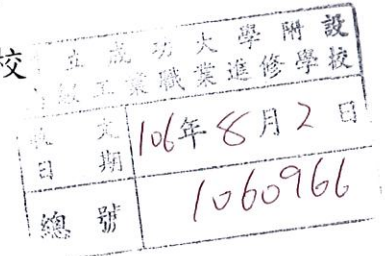 校
立成功大學附設
級工業職業進修學校
收文
日期
106年8月2日
總號
1060966